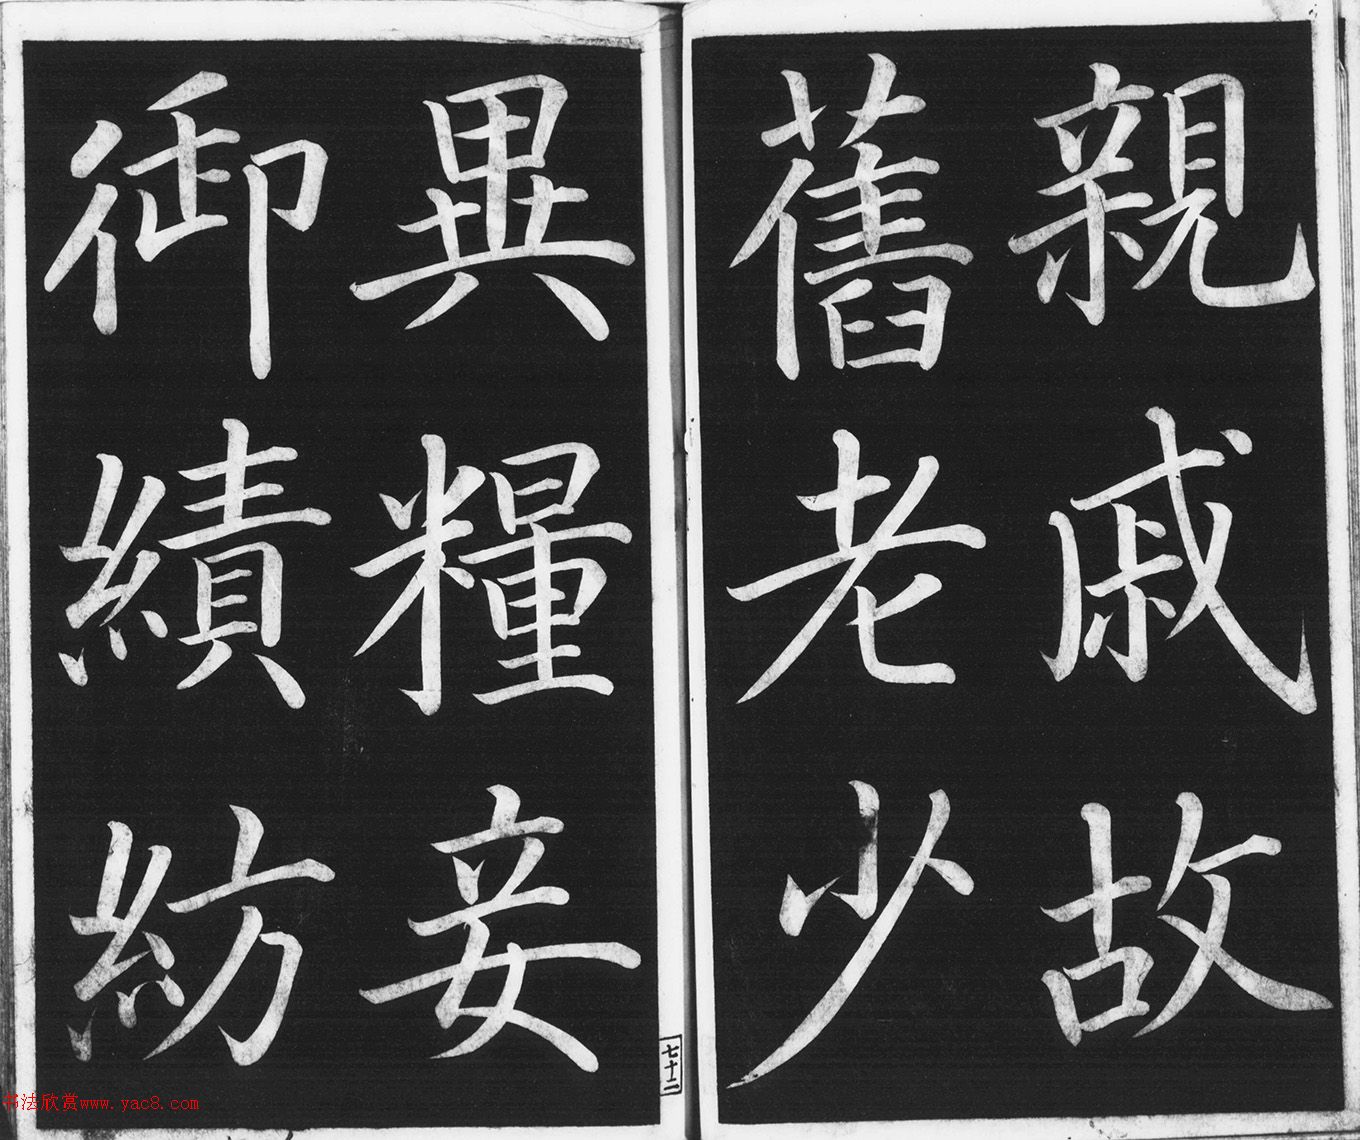 親戚故
舊老少
異糧妾
御績紡
七十二
书法欣赏www.yac8.com